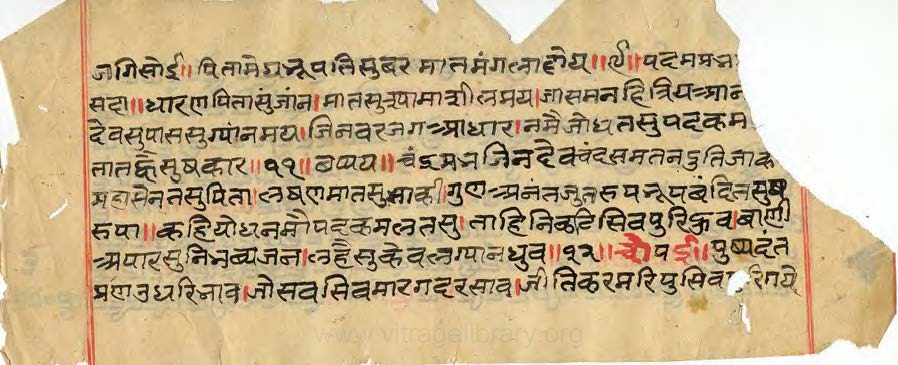 जगिसोई॥ पितामेघनृपतिसुबर मातमंगलाहोय॥ पदमप्रभ
सदा॥धारणपितासुंजांन।मातसुसीमाशीलमय।जासमनहित्रिय
देवसुपाससुग्यांनमय।जिनवरजगआधार।नमैजोधतसुपदकम
तातह्वैसुषकार॥११॥छप्पय॥चंद्रप्रभजिनदेवचंदसमतनदुतिजाक
महासेनतसुपिता।लषणमातसुभाकी।गुणअनंतजुतरुपनृपबंदितसुष
रुपा॥कहियोधनमौपदकमलतसु।ताहिनिकटिसिवपुरिध्रुव।बाणी
अपारसुनिभव्यजन।लहैसुकेवलग्यानध्रुव॥१२॥चौपई॥पुष्पदंत
प्रणउधरिभाव।जोसवसिवमारगदरसाव।जीतिकरमरिपुसिव
www.vitragelibrary.org